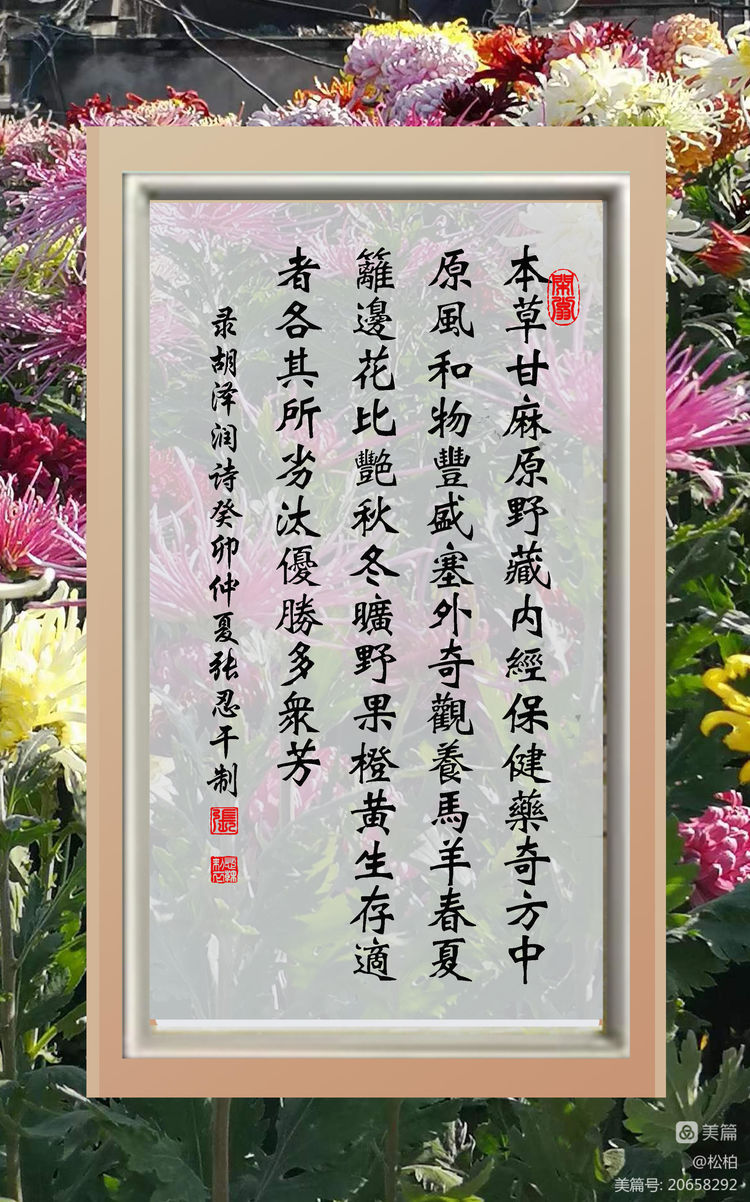 本草甘麻原野藏内經保健藥奇方中
原風和物豐盛塞外奇觀養馬羊春夏
籬邊花比艷秋冬曠野果橙黃生存適
者各其所劣汰優勝多衆芳
录胡泽润诗癸卯仲夏张忍干制
張
美篇
@松柏
美篇号: 20658292